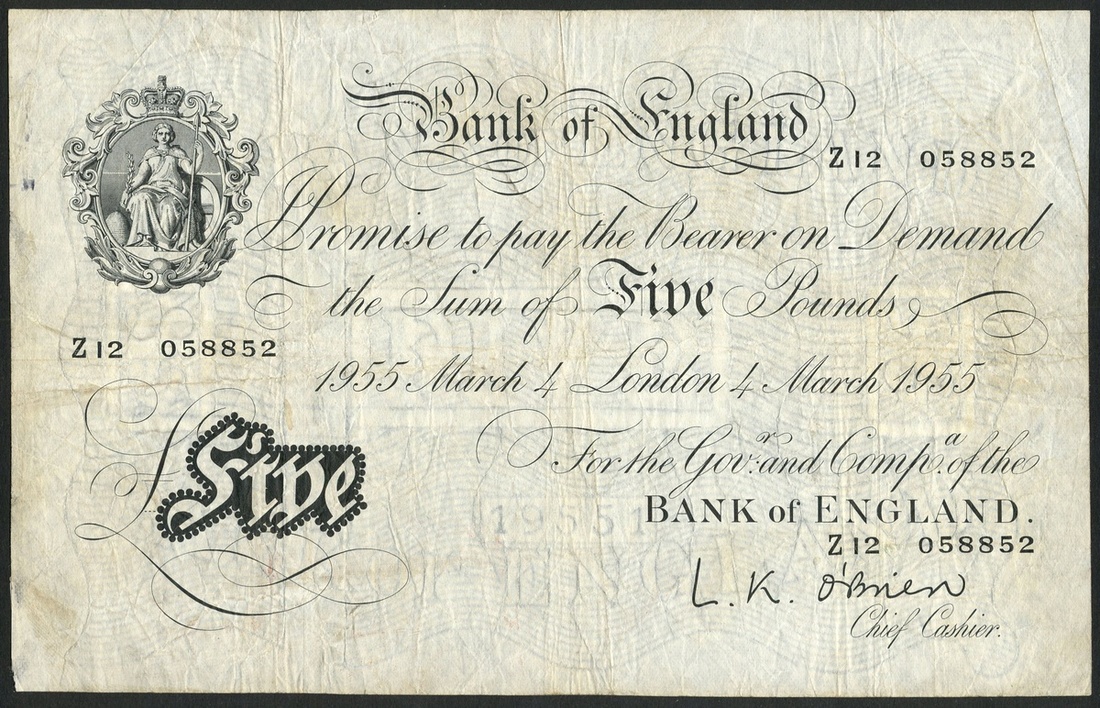 Bank of England
Z12 058852
I Promise to pay the Bearer on Demand
the Sum of Five Pounds
Z12 058852
1955 March 4 London 4 March 1955
£Five
For the Govr. and Compa. of the
BANK of ENGLAND.
Z12 058852
L. K. O'Brien
Chief Cashier.